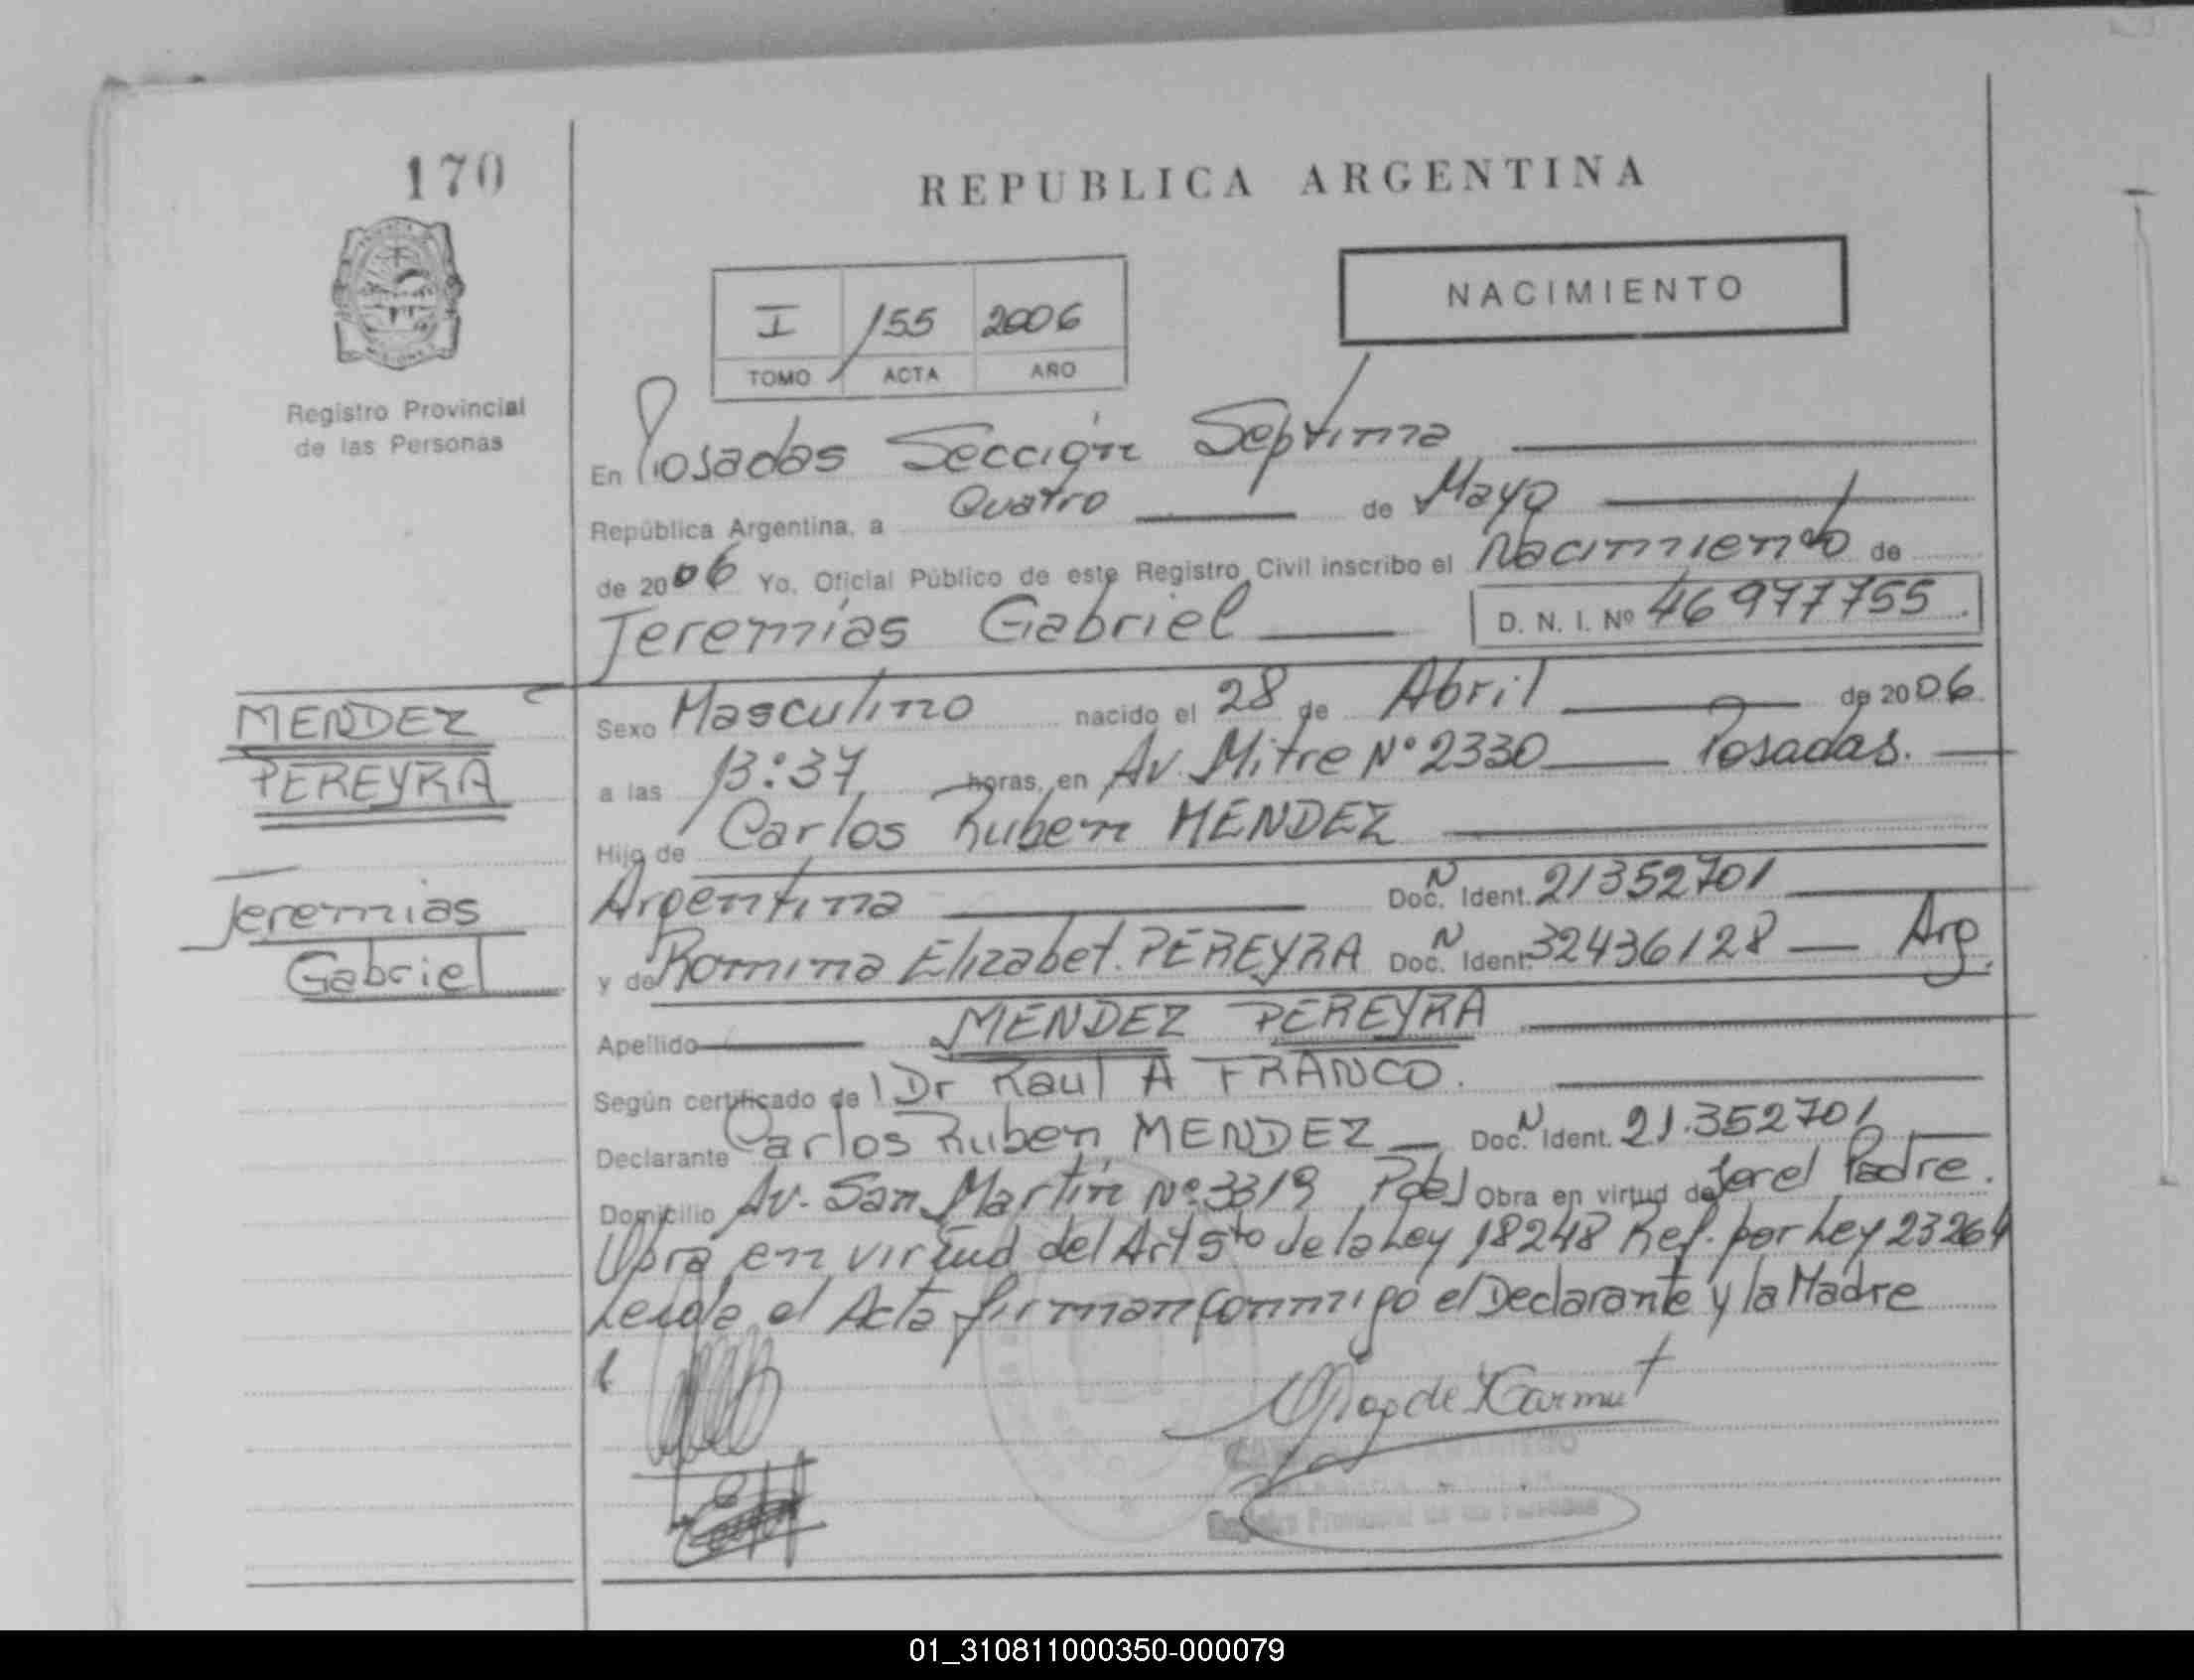 170
REPUBLICA ARGENTINA
NACIMIENTO
I 155 2006
TOMO ACTA AÑO
Registro Provincial
de las Personas
En Posadas Sección Septima
República Argentina, a Quatro de Mayo
de 2006 Yo, Oficial Público de este Registro Civil inscribo el Nacimiento de
Jeremías Gabriel D. N. I. Nº 46977755
MENDEZ
PEREYRA
Jeremias
Gabriel
Sexo Masculino nacido el 28 de Abril de 2006
a las 13:37 horas, en Av. Mitre Nº 2330 Posadas.
Hijo de Carlos Ruben MENDEZ
Argentina Doc. N Ident. 21352701
y de Romina Elizabet. PEREYRA Doc. N Ident. 32436128 Arg.
Apellido MENDEZ PEREYRA
Según certificado de Dr Raul A FRANCO.
Declarante Carlos Ruben MENDEZ Doc. N Ident. 21.352701
Domicilio Av. San Martín Nº 3319 Obra en virtud de Padre.
Obra en virtud del Art 5to de la Ley 18248 Ref. por Ley 23264
Leida el Acta firman conmigo el Declarante y la Madre
Registro Provincial de las Personas
01_310811000350-000079